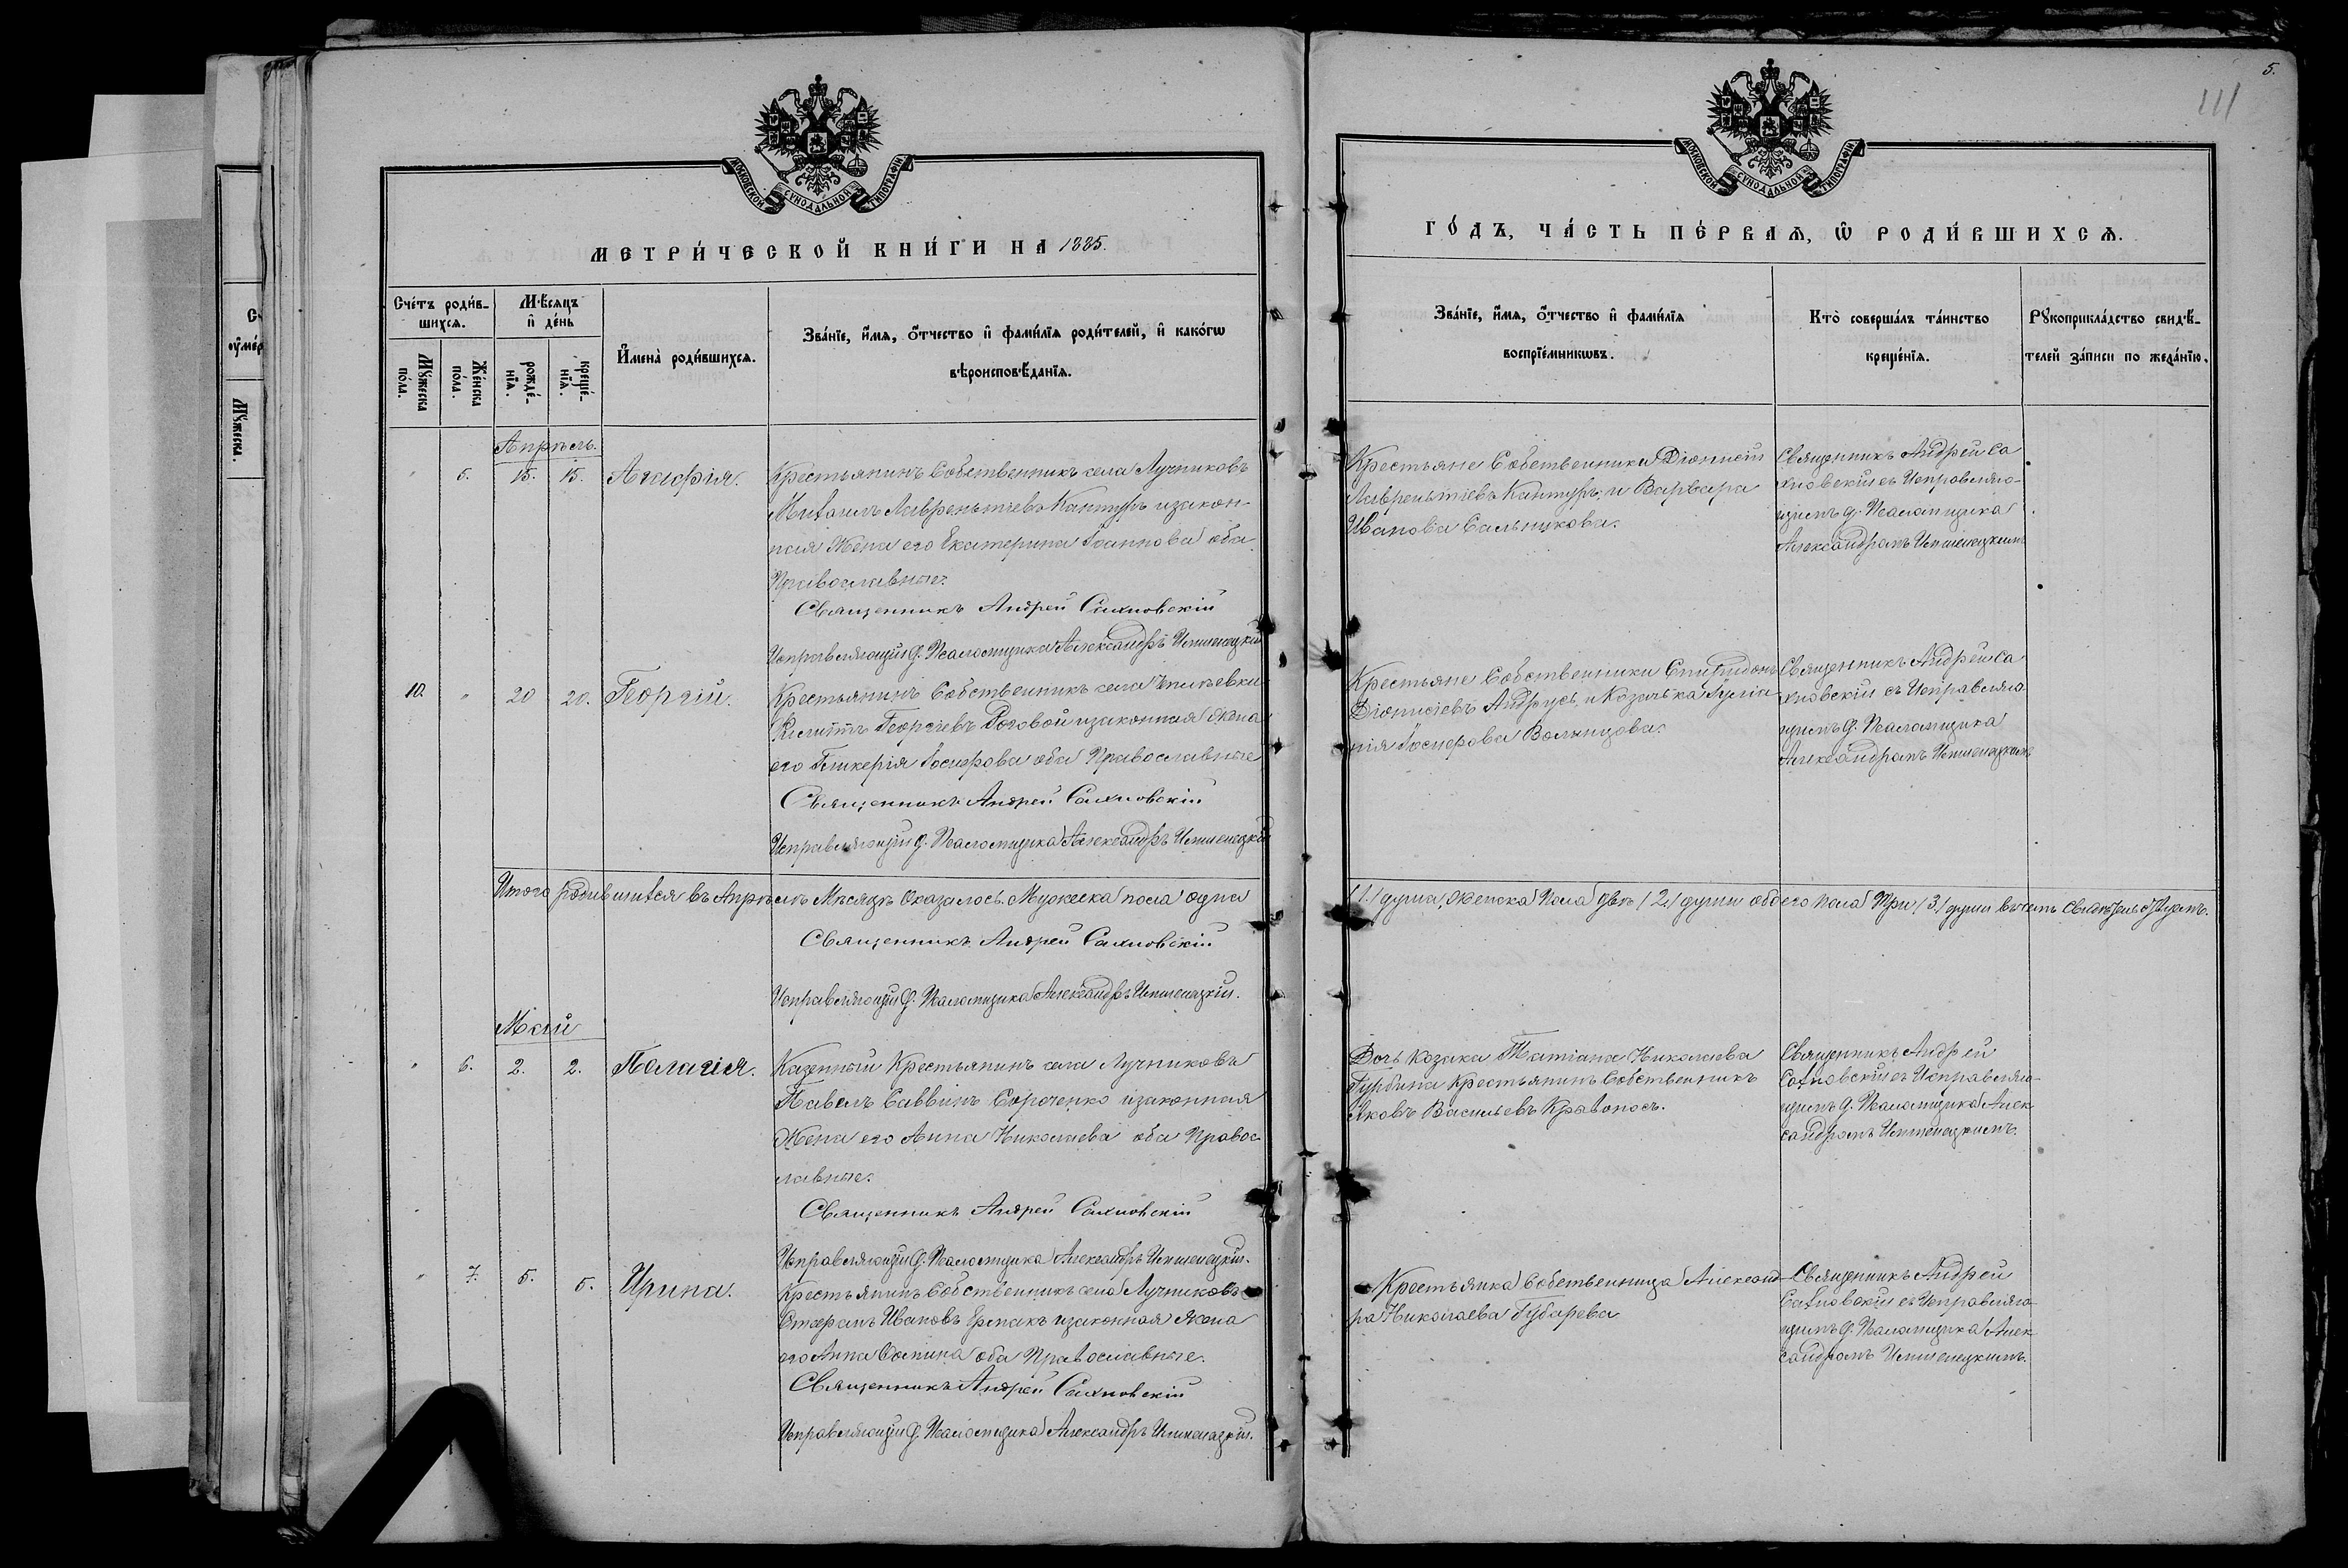 5.
111
МОСКОВСКОЙ СѴНОДАЛЬНОЙ ТИПОГРАФІИ
МОСКОВСКОЙ СѴНОДАЛЬНОЙ ТИПОГРАФІИ
МЕТРИ́ЧЕСКОЙ КНИ́ГИ НА 1885.
ГО́ДЪ, ЧА́СТЬ ПЕ́РВАѦ, Ѡ РОДИ́ВШИХСѦ.
Сче́тъ роди́в-
шихсѧ.
Мѣ́сѧцъ
и҆ де́нь
Мꙋ́жеска
по́ла.
Же́нска
по́ла.
рожде́-
нїѧ.
креще́-
нїѧ.
И҆мена̀ роди́вшихсѧ.
Зва́нїе, и҆́мѧ, ѻ҆́тчество и҆ фами́лїѧ роди́телей, и҆ како́гѡ
вѣроисповѣ́данїѧ.
Зва́нїе, и҆́мѧ, ѻ҆́тчество и҆ фами́лїѧ
воспрїе́мникѡвъ.
Кто̀ соверша́лъ та́инство
креще́нїѧ.
Рꙋкоприкла́дство свидѣ́-
телей за́писи по жела́нїю.
Апрѣль.
" 5. 15. 15. Агафія.
Крестьянинъ Собственникъ села Лучниковъ
Михаилъ Лаврентіевъ Кантуръ изакон-
ная Жена его Екатерина Іоаннова оба
Православные.
Священникъ Андрей Сахновскій
Исправляющій д. Псаломщика Александръ
Крестьяне Собственники Діонисій
Лаврентіевъ Кантуръ, и Варвара
Иванова Сальникова.
Священникъ Андрей Са
хновскій съ Исправляю-
щимъ д. Псаломщика
Александромъ
10. " 20 20. Георгій.
Крестьянинъ Собственникъ села
Георгіевъ Роговой изаконная Жена
его Гликерія Іосифова оба Православные
Священникъ Андрей Сахновскій
Исправляющій д. Псаломщика Александръ
Крестьяне Собственники Спиридонъ
Діонисіевъ Андрусь, и Козачка
Іосифова Волынцова.
Священникъ Андрей Са
хновскій съ Исправляю
щимъ д. Псаломщика
Александромъ
Итого родившихся въ Апрѣлѣ Мѣсяцѣ Оказалось. Мужеска пола одна /1./ душа, Женска Пола двѣ /2./ души обоего пола Три /3/ души въ чемъ свидѣтельствуемъ.
Священникъ Андрей Сахновскій
Исправляющій д. Псаломщика Александръ
Май
" 6. 2. 2. Пелагія.
Казенный Крестьянинъ села Лучниковъ
Павелъ Саввинъ Сороченко изаконная
Жена его Анна Николаева оба Правос
лавные.
Священникъ Андрей Сахновскій
Исправляющій д. Псаломщика Александръ
Дочь Козака Татіана Николаева
Турбина Крестьянинъ Собственникъ
Яковъ Васильевъ Кривоносъ.
Священникъ Андрей
Сахновскій съ Исправляю-
щимъ д. Псаломщика Алек
сандромъ
" 7. 5. 5. Ирина.
Крестьянинъ Собственникъ села Лучниковъ
Стефанъ Ивановъ Ермакъ изаконная Жена
его Анна Фомина оба Православные.
Священникъ Андрей Сахновскій
Исправляющій д. Псаломщика Александръ
Крестьянка Собственница Александ-
ра Николаева Губарева
Священникъ Андрей
Сахновскій съ Исправляю-
щимъ д. Псаломщика Алек
сандромъ